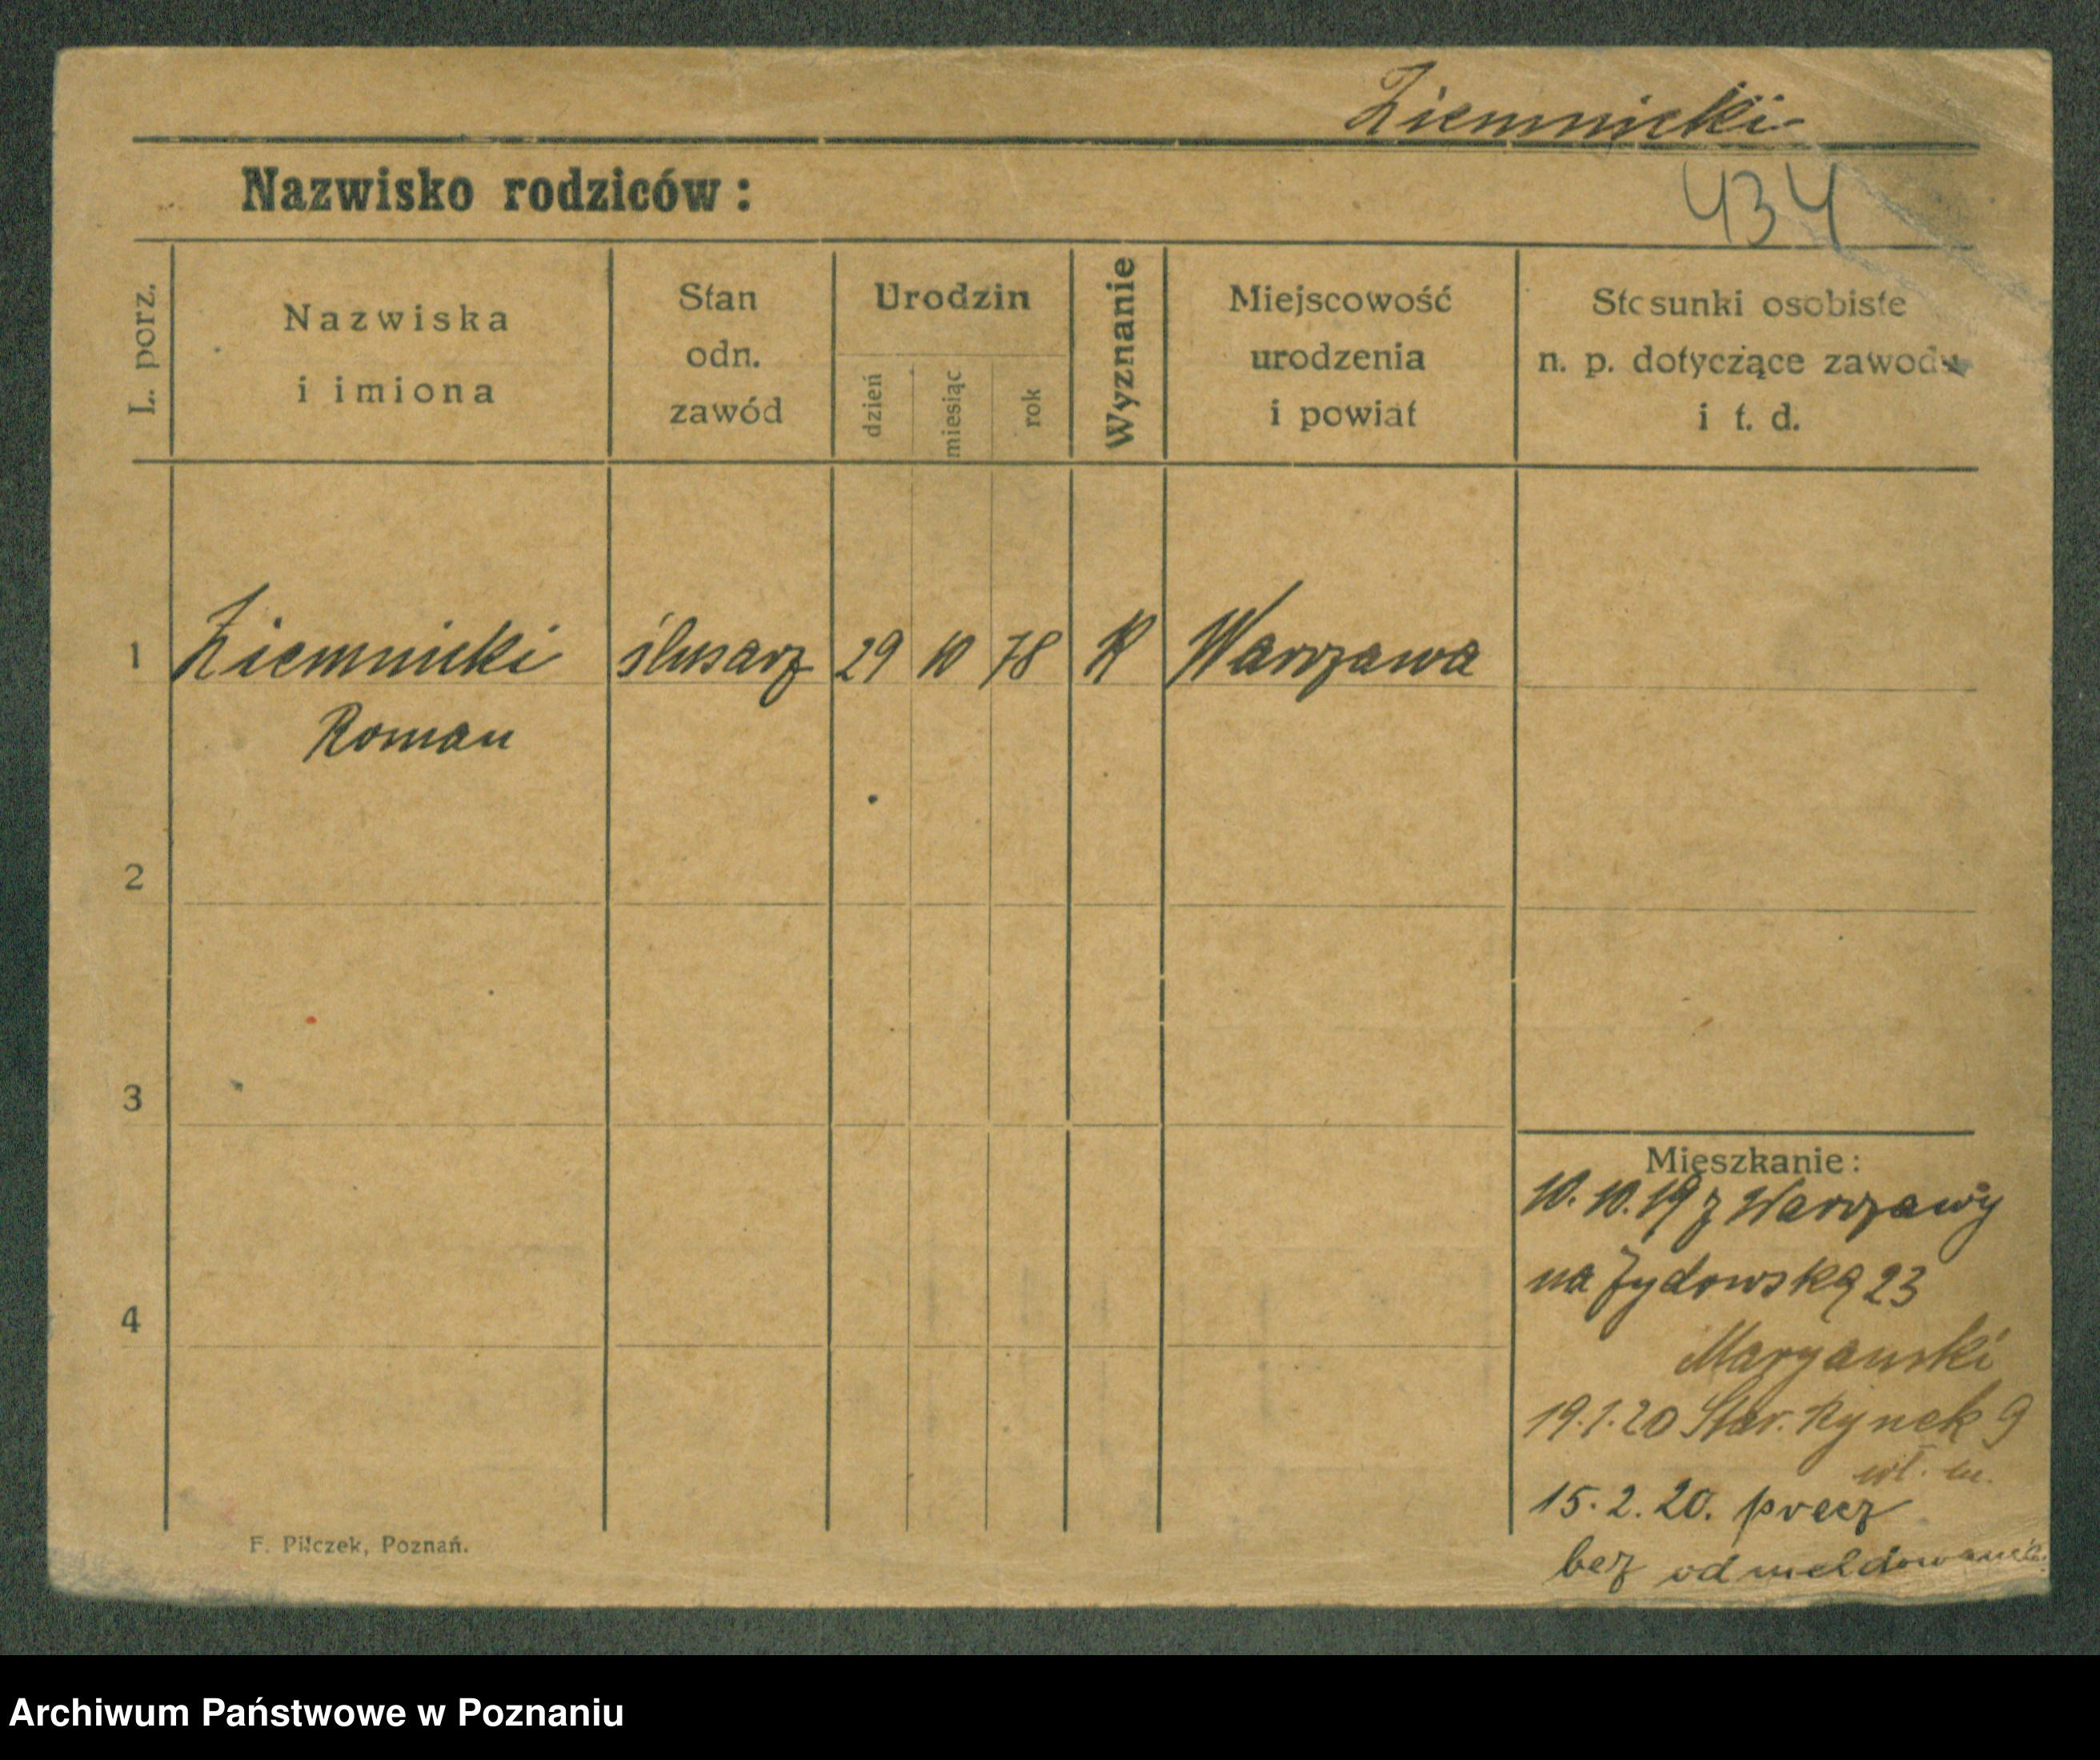 Ziemnicki
Nazwisko rodziców:
434
L. porz.
Nazwiska
i imiona
Stan
odn.
zawód
Urodzin
dzień
miesiąc
rok
Wyznanie
Miejscowość
urodzenia
i powiat
Stosunki osobiste
n. p. dotyczące zawodu
i t. d.
1 Ziemnicki ślusarz 29 10 78 K Warszawa
Roman
2
3
4
Mieszkanie:
10.10.19 z Warszawy
na Żydowską 23
Maryański
19.1.20 Star. Rynek 9
wł. m.
15.2.20. precz
bez odmeldowania.
F. Pilczek, Poznań.
Archiwum Państwowe w Poznaniu